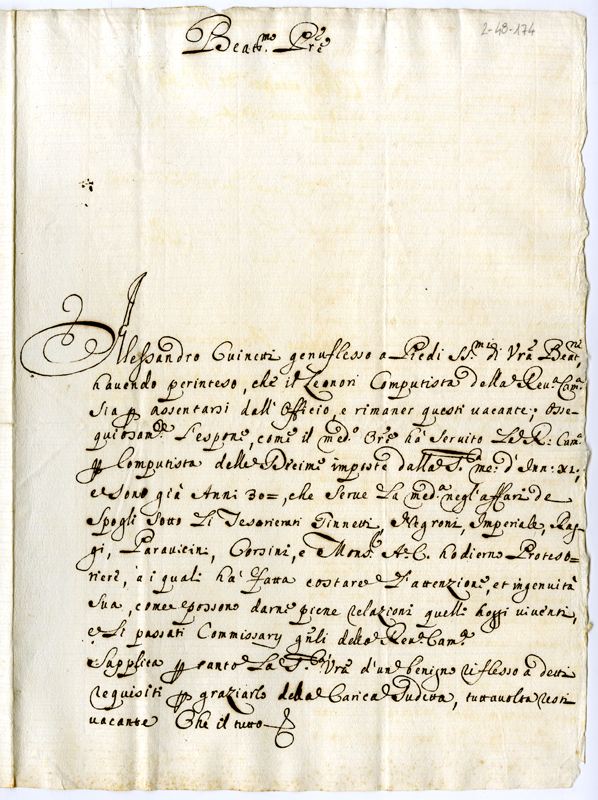 2-48-174
Beat.mo Pre
Alessandro genuflesso a Piedi SS.mi di Vra Beat.ne
havendo perinteso, che il Leonori Computista della Reva Cam.a
sia p assentarsi dall' Officio, e rimaner questi vacante; Osse-
quiosam.te l'espone, come il med.o Ore ha servito la R: Cam.a
p Computista delle Decime imposte dalla S. me: d'Inn: XI;
e sono già Anni 30=, che serve la med.a negl'affari de
Spogli sotto li Tesorierati Ginnetti, Negroni, Imperiale, Rag-
gi, Paravicini, Corsini, e Mons. A.C. hodierno Proteso-
riere, a i quali ha' fatta costare l'attenzione, et ingenuità
sua, come possono darne piene relazioni quelli hoggi viventi,
e li passati Commissary gnli della Rene Cam.a
Supplica p tanto la S. Vra d'un benigno riflesso a detti
requisiti p graziarlo della Carica sudetta, tuttavolta resti
vacante Che il tutto